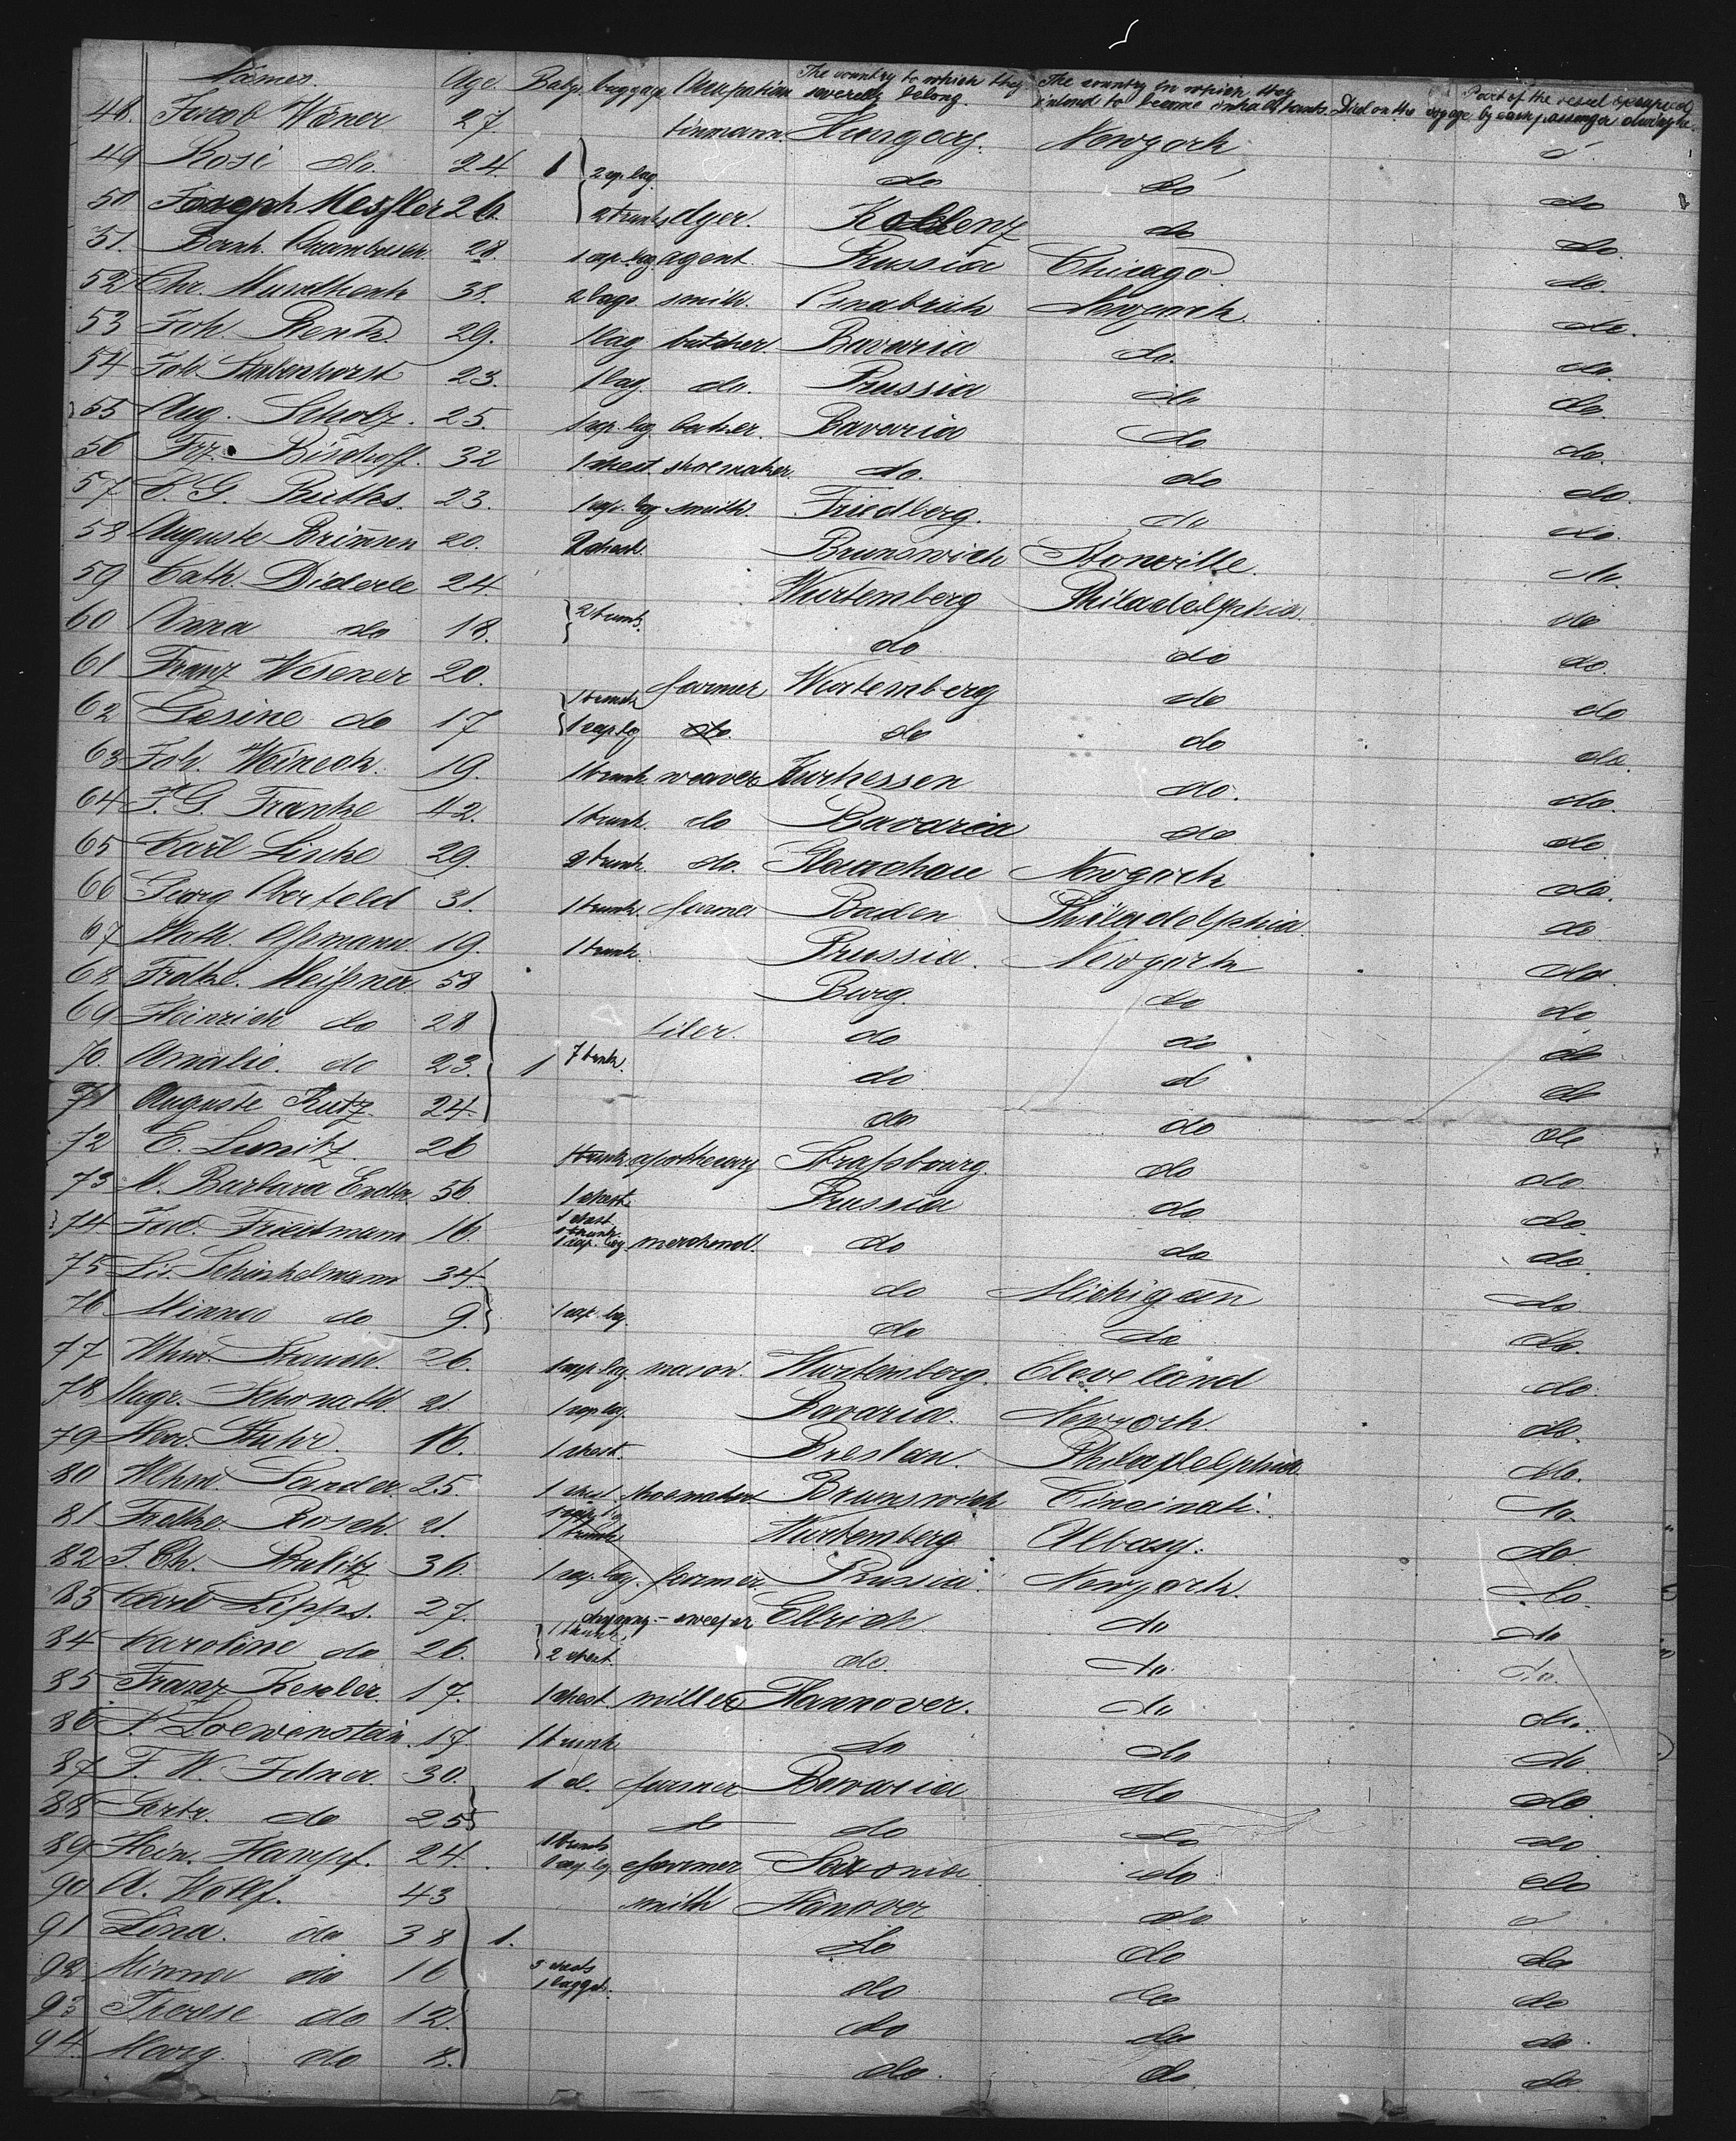 Names. Age. Baby. baggage Occupation The country to which they severelly belong. The country in which they intend to become inhabitants. Died on the voyage Part of the vessel occupied by each passenger during the
48. Jacob Wiener 27. tinmann. Hungary. Newyork
49 Rosi do. 24. 1 2 cp. bag. do do do
50 Joseph Messler 26 2 trunks dyer. Koblenz do do.
51. Bernh. 28. 1 cap. bag agent. Prussia Chicago do.
52 Chr. 38. 2 bags smith. Newyork. do.
53 Joh. Rentz. 29. 1 bag butcher. Bavaria do. do.
54 Joh. 23. 1 bag. do. Prussia do do.
55 Aug. Scholz. 25. 1 cap. bag baker. Bavaria do do.
56 Frz. Bischoff. 32 1 chest. shoemaker do. do do.
57 G. Ruths. 23. 1 cp. bag smith. Friedberg. do do.
58 Auguste Brimsen 20. 2 chest. Brunswick Stonville. do.
59 Cath. Diderle 24 Wurtemberg Philadelphia. do
60 Anna do 18. 2 trunk. do do do.
61 Franz Wesener 20. 1 trunk farmer Wurtemberg do do
62 Gesine do 17 1 cap bg do. do do do.
63 Joh. Weineck. 19. 1 trunk weaver Kurhessen do. do.
64 F. G. Franke 42. 1 trunk. do Bavaria do do.
65 Karl Lincke 29. 2 trunk. do. Glauchau Newyork do.
66 Georg Oberfeld 31. 1 trunk. farmer Baden Philadelphia do.
67 Math. Aßmann. 19. 1 trunk. Prussia. Newyork do.
68 Frdke. Meißner. 58 Burg. do do
69 Heinrich do 28 tiler. do do do
70. Amalie. do 23. 1 7 trunk. do d do
71 Auguste Kutz 24. do do do
72 E. Lunitz. 26 1 trunk. apothecary Straßbourg. do do.
73 M. Barbara Endler 56 1 chest. Prussia do do.
74 Ferd. Friedmann 16. 1 chest 1 trunk. 1 cap. bag merchand. do do do.
75 Schinkelmann 34. do Michigan do.
76 Minna do 9. 1 cap. bag. do do do.
77 Whm. Stauch. 26. 1 cap bag. mason. Wurtemberg. Cleveland do.
78 Magr. 21. 1 cap bag. Bavaria. Newyork. do.
79 Stuhr. 16. 1 chest. Breslau. Philadelphia do.
80 Wlhm. Sander. 25. 1 chest. shoemaker Brunswick Cincinati. do.
81 Fredke. Rosch. 21. 1 trunk Wurtemberg Albany. do.
82 J. Ch. Stulitz 36. 1 cap. bag. farmer. Prussia. Newyork. do.
83 Carl Lipps. 27. chymny-sweeper Ellrich do do
84 Karoline do 26. 1 trunk. 2 chest. do. do. do.
85 Franz Kessler. 17. 1 chest. miller Hannover. do do.
86 Loewenstein. 17 1 trunk do do do.
87 F. W. Felner. 30. 1 d. farmer Bavaria do do.
88 Gertr. do 25 do do do do.
89 Hein. Hampf. 24. 1 trunk 1 cap. bg. farmer Saxonia do do
90 A. Wollf. 43 smith Hanover do
91 Lina. do 38 1. do do do
92 Minna do 16 3 chests 1 baggs. do do do
93 Therese do 12. do do do
94. Marg. do 2. do. do. do